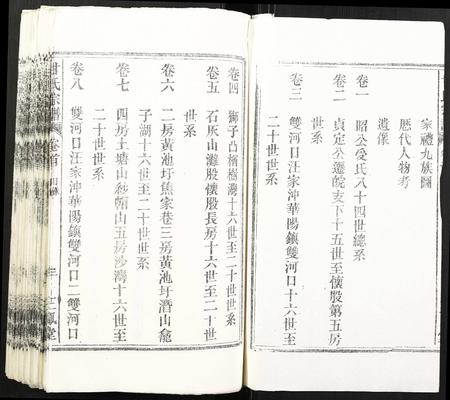 家禮九族圖
歷代人物考
遺像
卷一 昭公受氏八十四世總系
卷二 貞定公遷皖亥下十五世至懷股第五房
世系
卷三 雙河口汪家沖華陽鎮雙河口十六世至
二十世世系
卷四 獅子凸楿樹灣十六世至二十世世系
卷五 石灰山灘股懷股長房十六世至二十世
世系
卷六 二房黃池圩焦家巷三房黃池圩潛山龕
子湖十六世至二十世世系
卷七 四房土塘山紗帽山五房沙灣十六世至
二十世世系
卷八 雙河口汪家沖華陽鎮雙河口二雙河口
甘氏宗譜 卷首 目錄